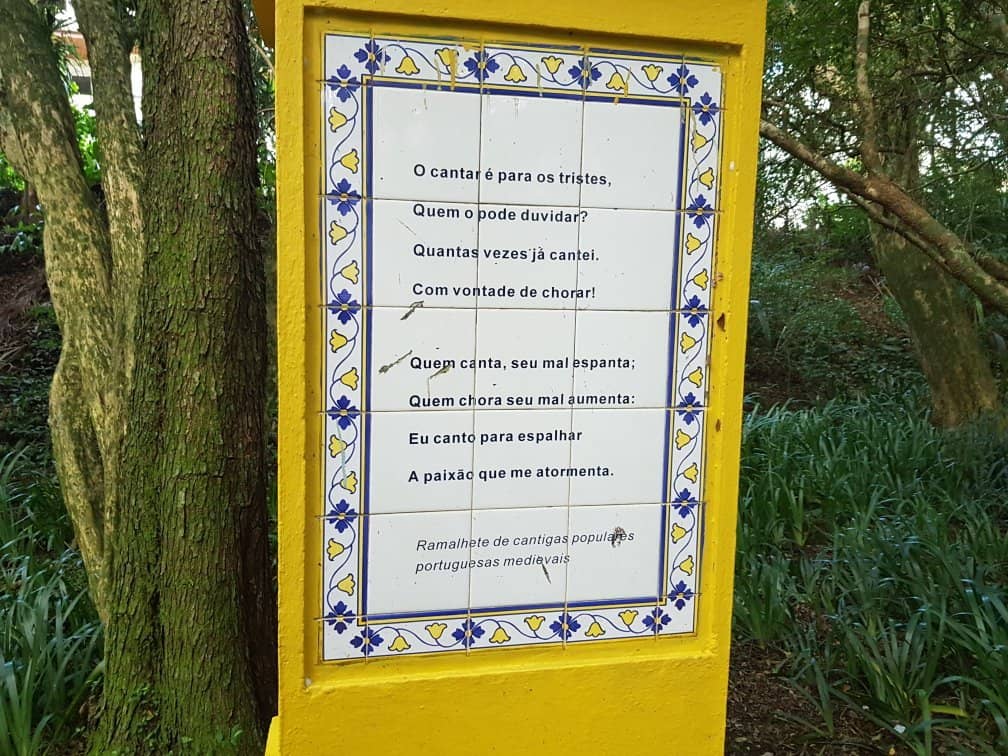 O cantar é para os tristes,
Quem o pode duvidar?
Quantas vezes já cantei.
Com vontade de chorar!
Quem canta, seu mal espanta;
Quem chora seu mal aumenta:
Eu canto para espalhar
A paixão que me atormenta.
Ramalhete de cantigas populares
portuguesas medievais